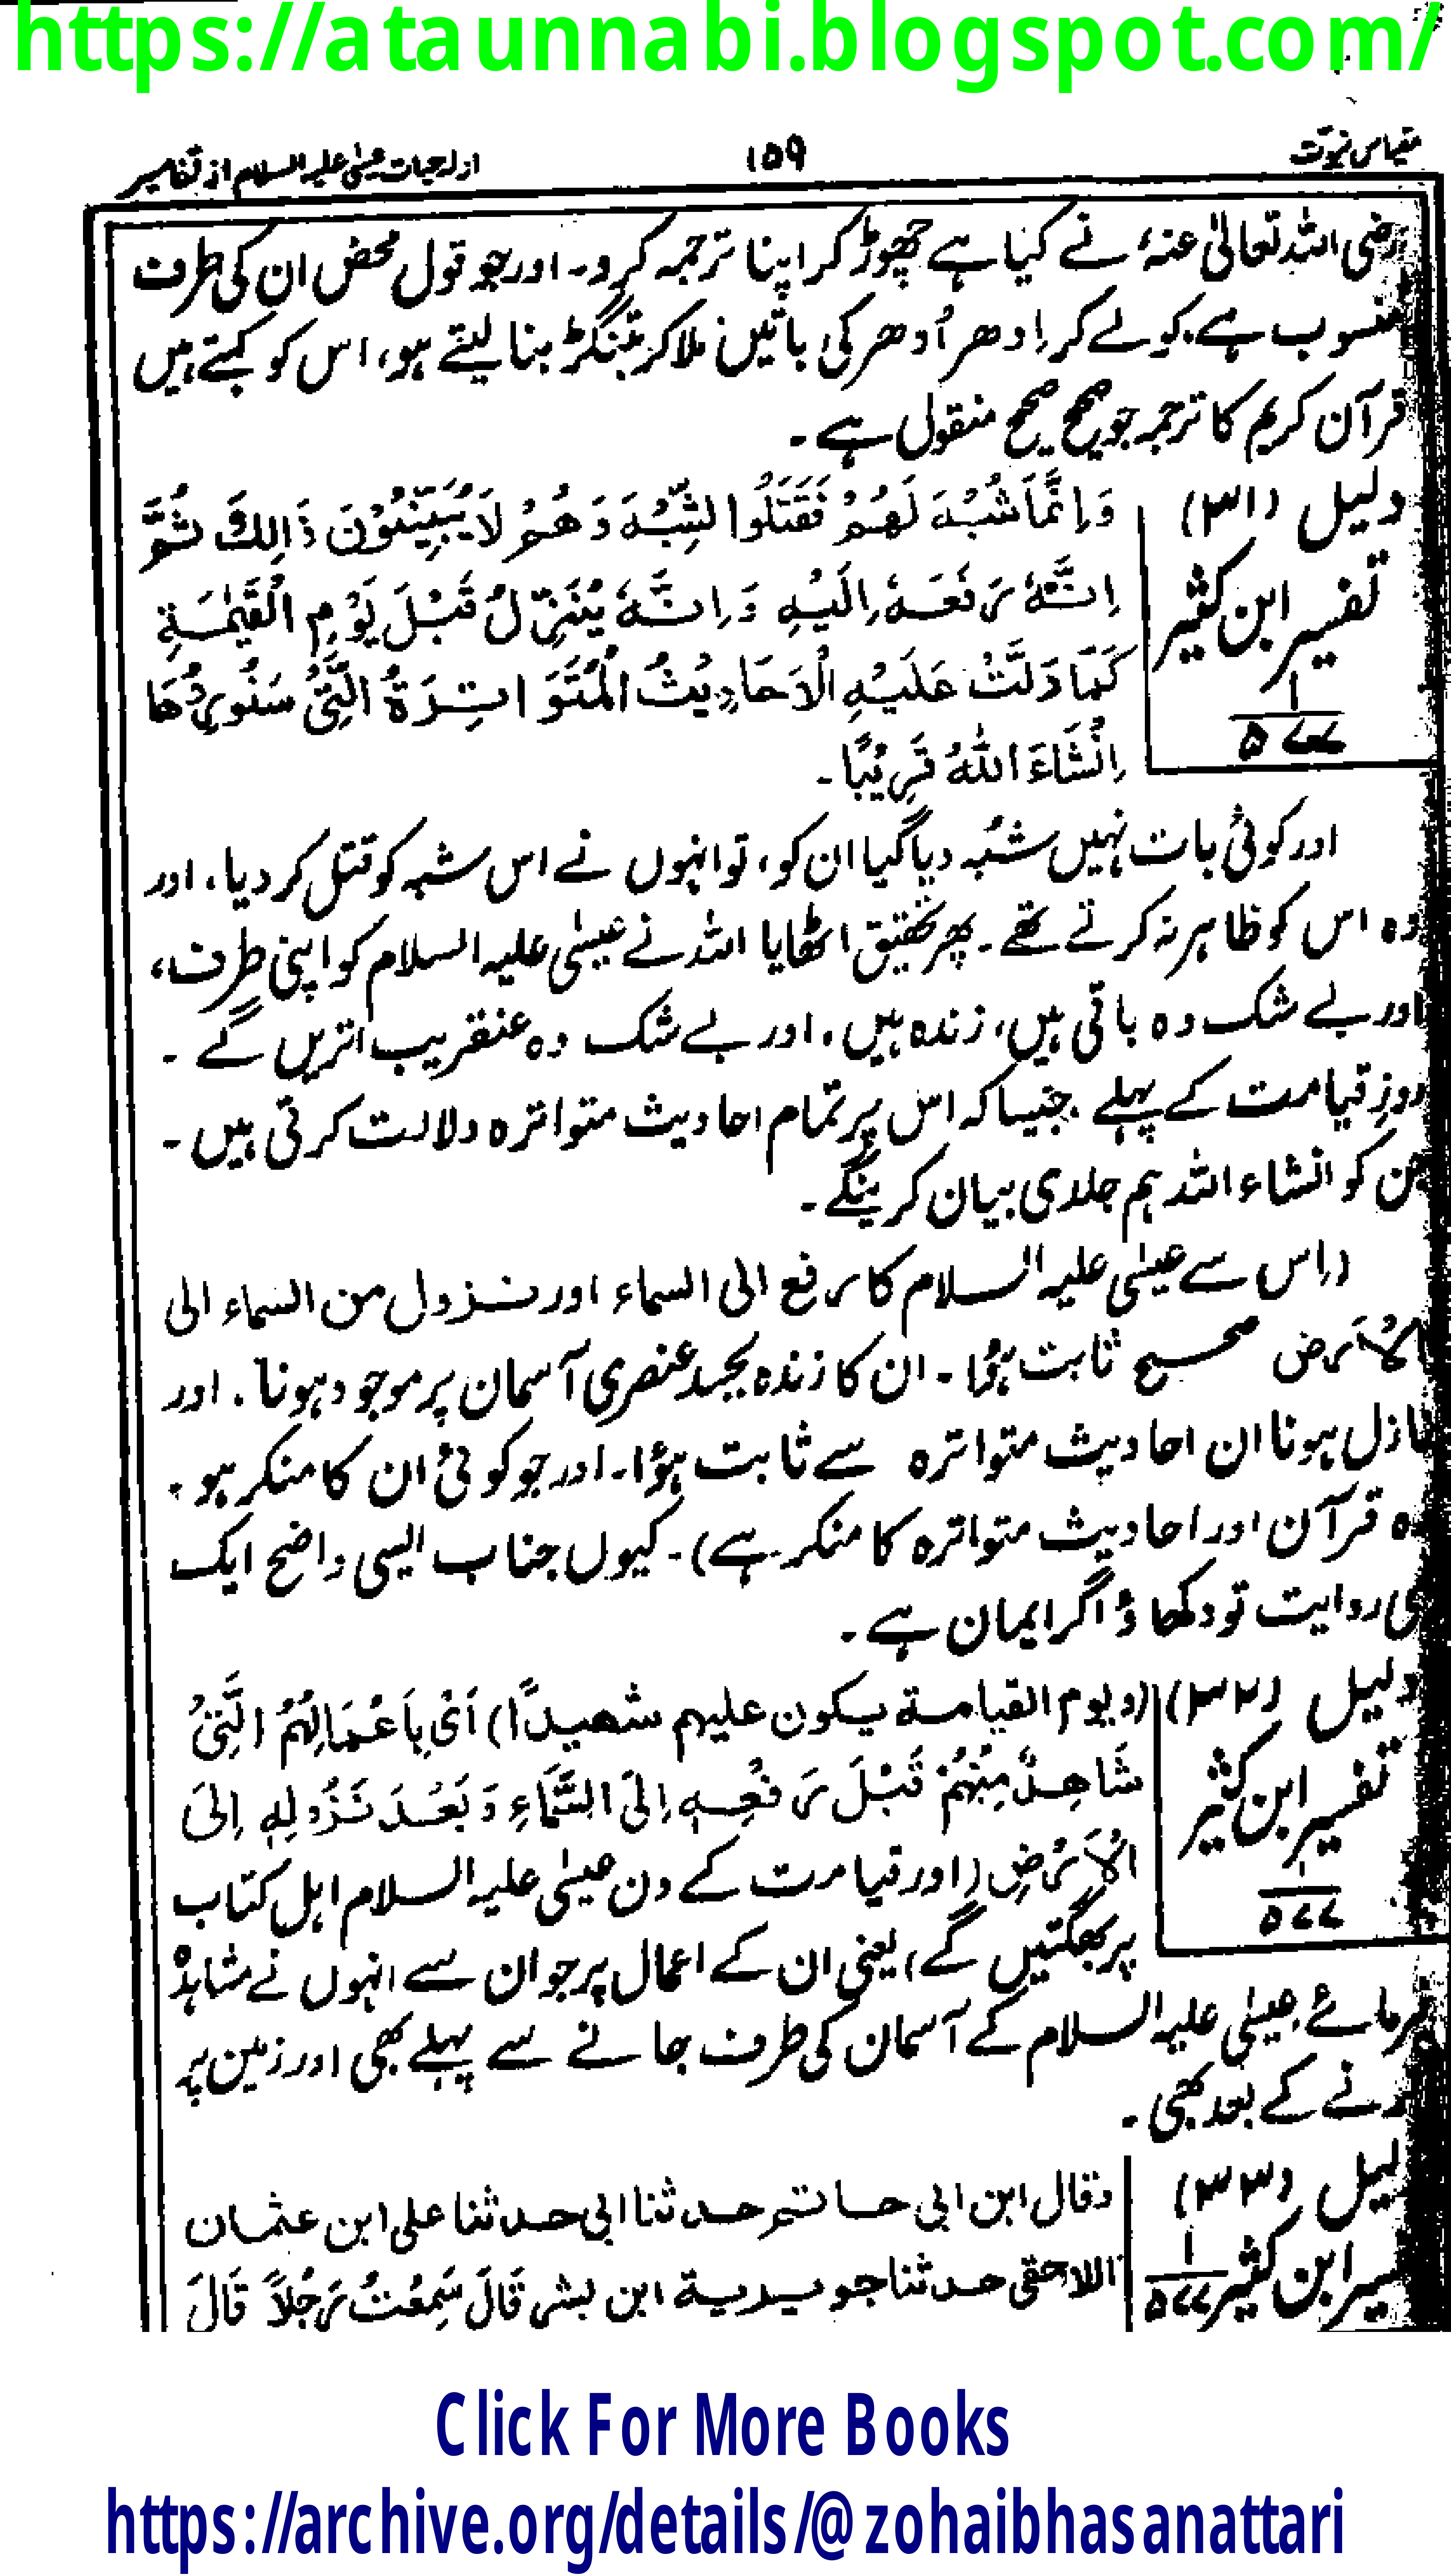 https://ataunnabi.blogspot.com/
مقیاس نبوت
۱۵۹
ازلہ حیات عیسٰی علیہ السلام از تفاسیر
رضی اللہ تعالیٰ عنہ، نے کیا ہے چھوڑ کر اپنا ترجمہ کرو۔ اور جو قول محض ان کی طرف
منسوب ہے، کو لے کر اِدھر اُدھر کی باتیں ملا کر بتنگڑ بنا لیتے ہو، اس کو کہتے ہیں
قرآن کریم کا ترجمہ جو صحیح صحیح منقول ہے۔
دلیل (۳۱)
تفسیر ابن کثیر
۱
۵۷۷
وَاِنَّمَا شُبِّهَ لَهُمْ فَقَتَلُوا الشِّبْهَ وَهُمْ لَا يُبَيِّنُوْنَ ذَالِكَ ثُمَّ
اِنَّهٗ رَفَعَهٗ اِلَيْهِ وَاِنَّهٗ يُنَزِّلُ قَبْلَ يَوْمِ الْقَيٰمَةِ
كَمَا دَلَّتْ عَلَيْهِ الْاَحَادِيْثُ الْمُتَوَاتِرَةُ الَّتِيْ سَنُورِدُهَا
اِنْشَاءَ اللّٰهُ قَرِيْبًا۔
اور کوئی بات نہیں شبہ دیا گیا ان کو، تو انہوں نے اس شبہ کو قتل کر دیا، اور
وہ اس کو ظاہر نہ کرتے تھے۔ پھر تحقیق اٹھایا اللہ نے عیسٰی علیہ السلام کو اپنی طرف،
اور بے شک وہ باقی ہیں، زندہ ہیں، اور بے شک وہ عنقریب اتریں گے۔
روزِ قیامت کے پہلے جیسا کہ اس پر تمام احادیث متواترہ دلالت کرتی ہیں۔
جن کو انشاء اللہ ہم جلدی بیان کرینگے۔
(اِس سے عیسٰی علیہ السلام کا رفع الی السماء اور نزول من السماء الی
الْاَرض صحیح ثابت ہؤا۔ ان کا زندہ بجسد عنصری آسمان پر موجود ہونا، اور
نازل ہونا ان احادیث متواترہ سے ثابت ہؤا۔ اور جو کوئی ان کا منکر ہو۔
وہ قرآن اور احادیث متواترہ کا منکر ہے)۔ کیوں جناب ایسی واضح ایک
ہی روایت تو دکھاؤ اگر ایمان ہے۔
دلیل (۳۲)
تفسیر ابن کثیر
۱
۵۷۷
(ویوم القیامة یکون علیهم شهیدًا) اَیْ بِاَعْمَالِهُمُ الَّتِیْ
شَاهِدٌ مِنْهُمْ قَبْلَ رَفْعِهٖ اِلَى السَّمَآءِ وَبَعْدَ نَزُوْلِهٖ اِلىَ
الْاَرْضِ (اور قیامت کے دن عیسٰی علیہ السلام اہل کتاب
پر بھگتیں گے) یعنی ان کے اعمال پر جو ان سے انہوں نے مشاہدہ
فرمائے عیسٰی علیہ السلام کے آسمان کی طرف جانے سے پہلے بھی اور زمین پر
کے بعد بھی۔
دلیل (۳۳)
تفسیر ابن کثیر
۱
۵۷۷
وقال ابن ابی حاتم حدثنا ابی حدثنا علی ابن عثمان
اللاحقی حدثنا جویریة ابن بشر قَالَ سَمِعْتُ رَجُلاً قَالَ
Click For More Books
https://archive.org/details/@zohaibhasanattari